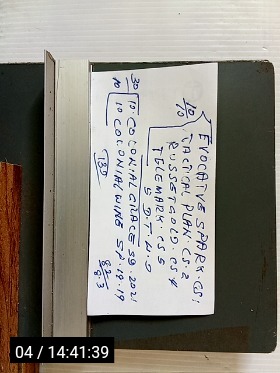 10/10 EVOCATIVE SPARK. GS1
TACTICAL PLAN. CS.2
RUSSET GOLD. CS 4
TELEMARK. CS 5
S D. T. W. O
30 10. COLONIAL GRACE SB. 2021
10 COLONIAL WINE SP. 19. 19
130
04 / 14:41:39